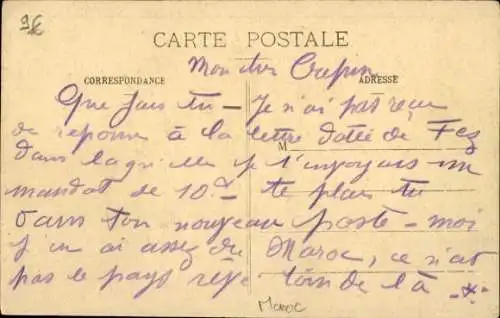 9€
CARTE POSTALE
Mon cher Crépin
CORRESPONDANCE
ADRESSE
Que fais tu - Je n'ai pas reçu
de réponse à la lettre datée de Fez
M
dans laquelle je t'envoyais un
mandat de 10 - te plais tu
dans ton nouveau poste - moi
j'en ai assez du Maroc, ce n'est
pas le pays loin de là -x-
Maroc